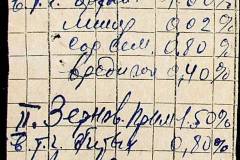 В т.ч.
минер 0.02%
сор. сем. 0.80%
вредител 0,40%
II. Зернов. прим 1.50%
В т.ч. битых 0,80%